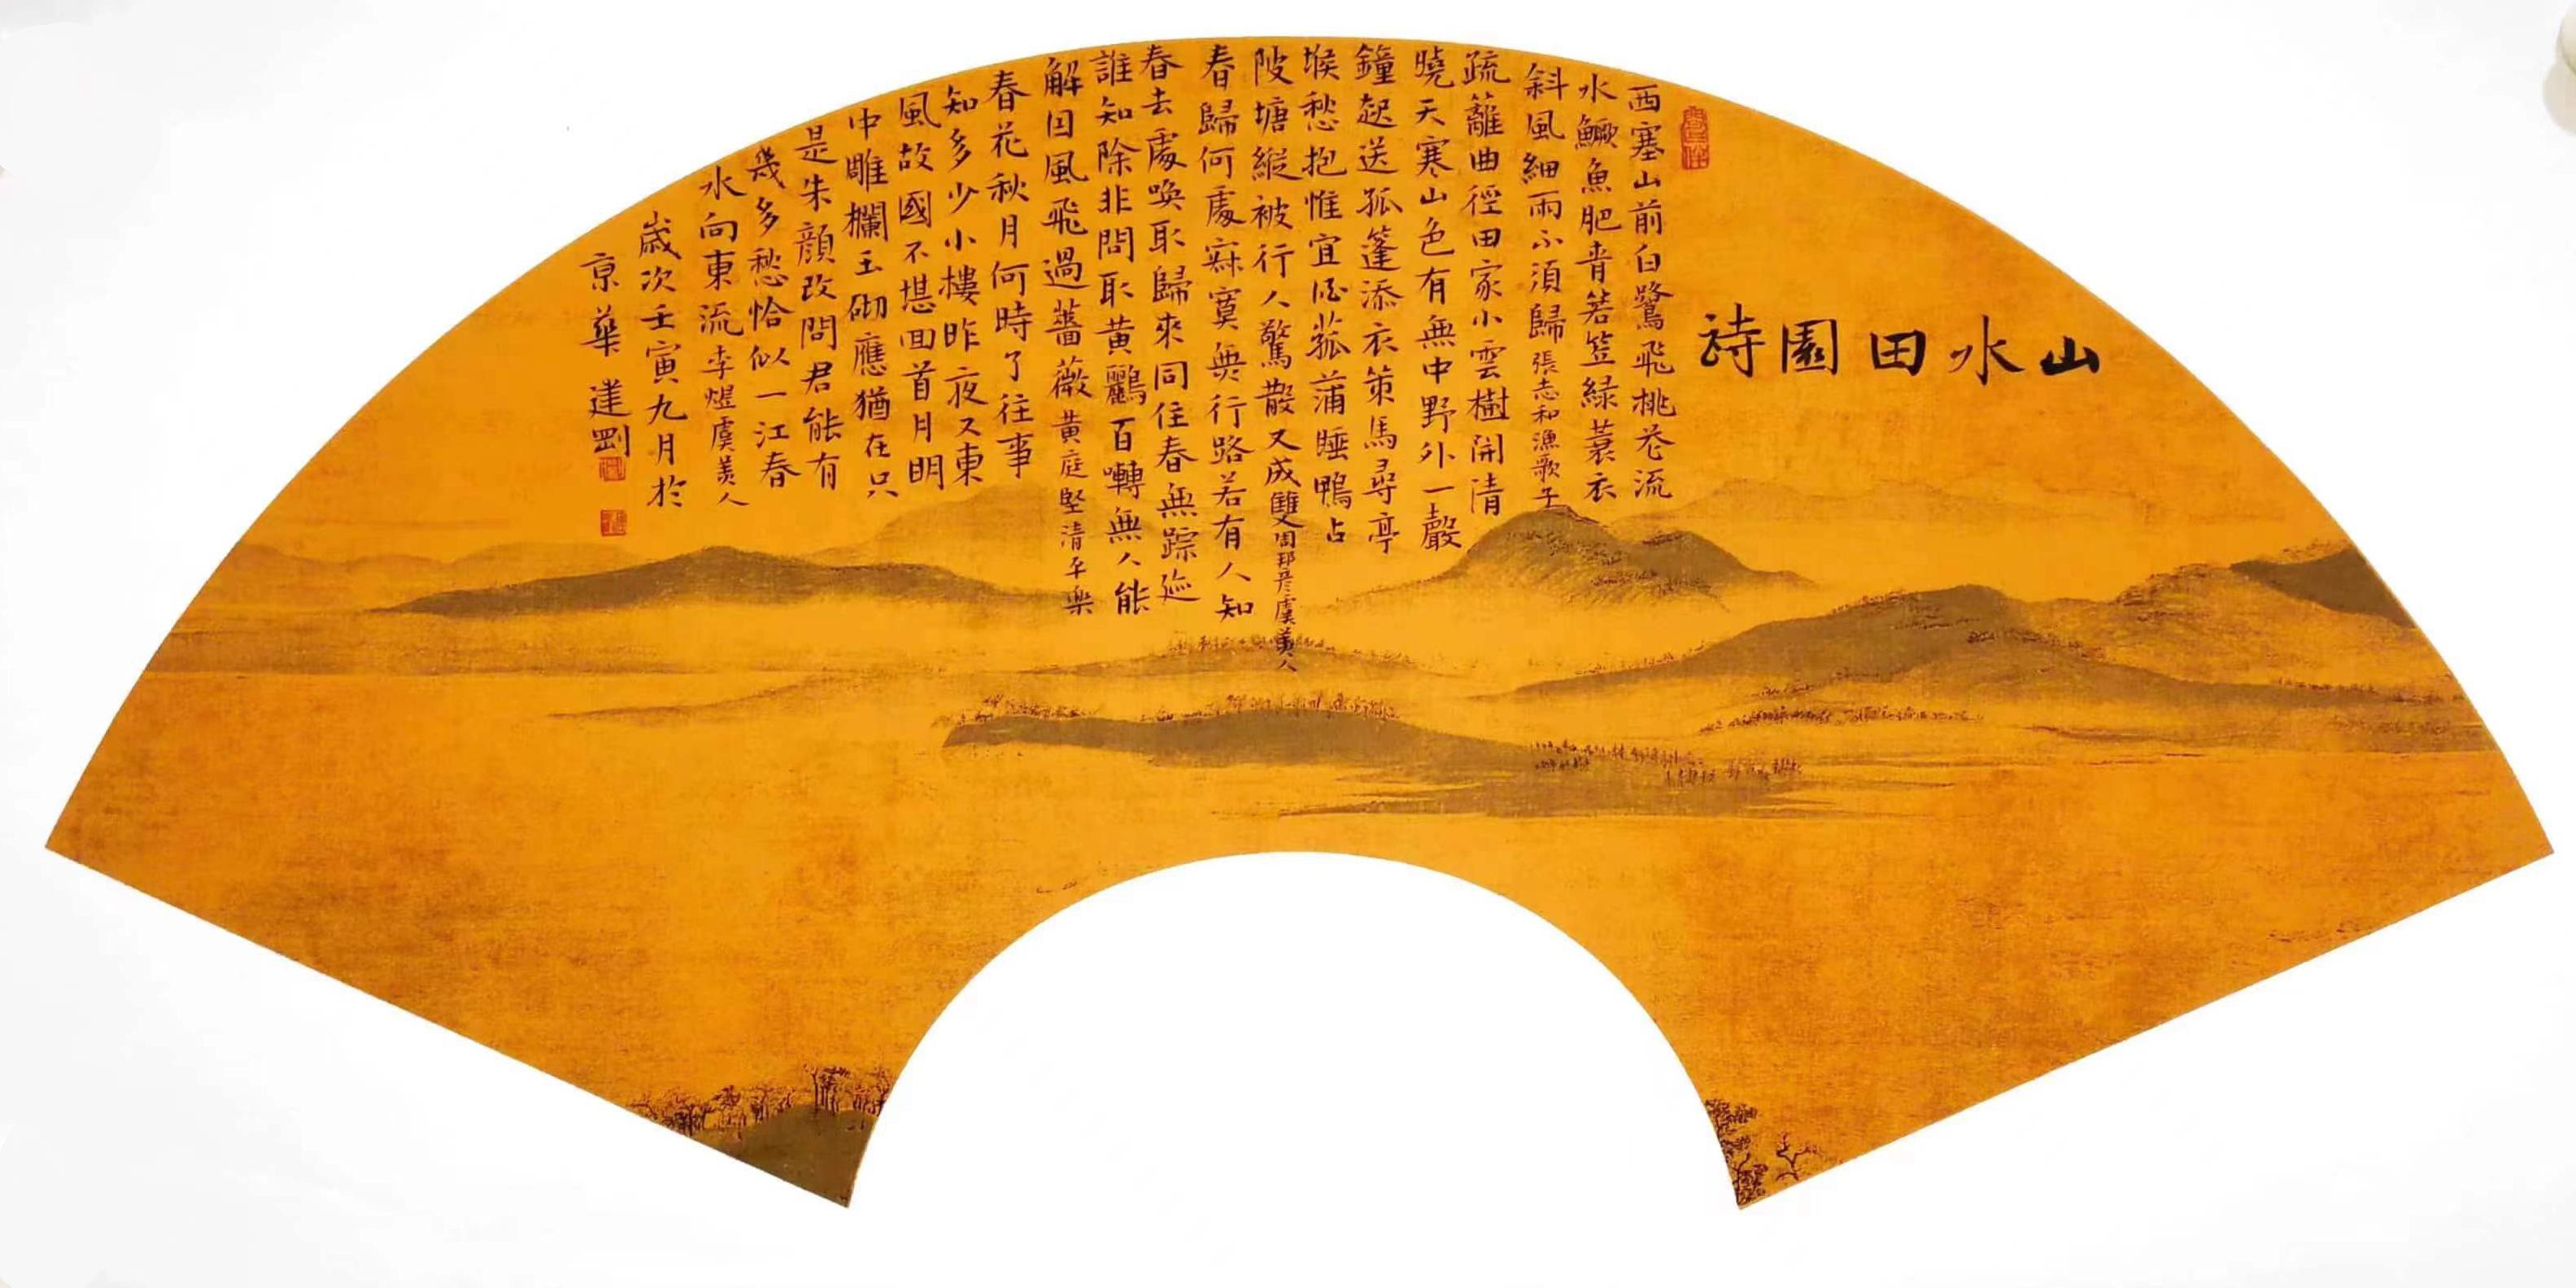 山水田園詩
西塞山前白鷺飛桃花流
水鱖魚肥青箬笠緑蓑衣
斜風細雨不須歸張志和漁歌子
疏籬曲徑田家小雲樹開清
曉天寒山色有無中野外一聲
鐘起送孤篷添衣策馬尋亭
堠愁抱惟宜酒菰蒲睡鴨占
陂塘縱被行人驚散又成雙周邦彦虞美人
春歸何處寂寞無行路若有人知
春去處喚取歸來同住春無踪迹
誰知除非問取黃鸝百囀無人能
解因風飛過薔薇黃庭堅清平樂
春花秋月何時了往事
知多少小樓昨夜又東
風故國不堪回首月明
中雕欄玉砌應猶在只
是朱顏改問君能有
幾多愁恰似一江春
水向東流李煜虞美人
歲次壬寅九月於
京華 剛